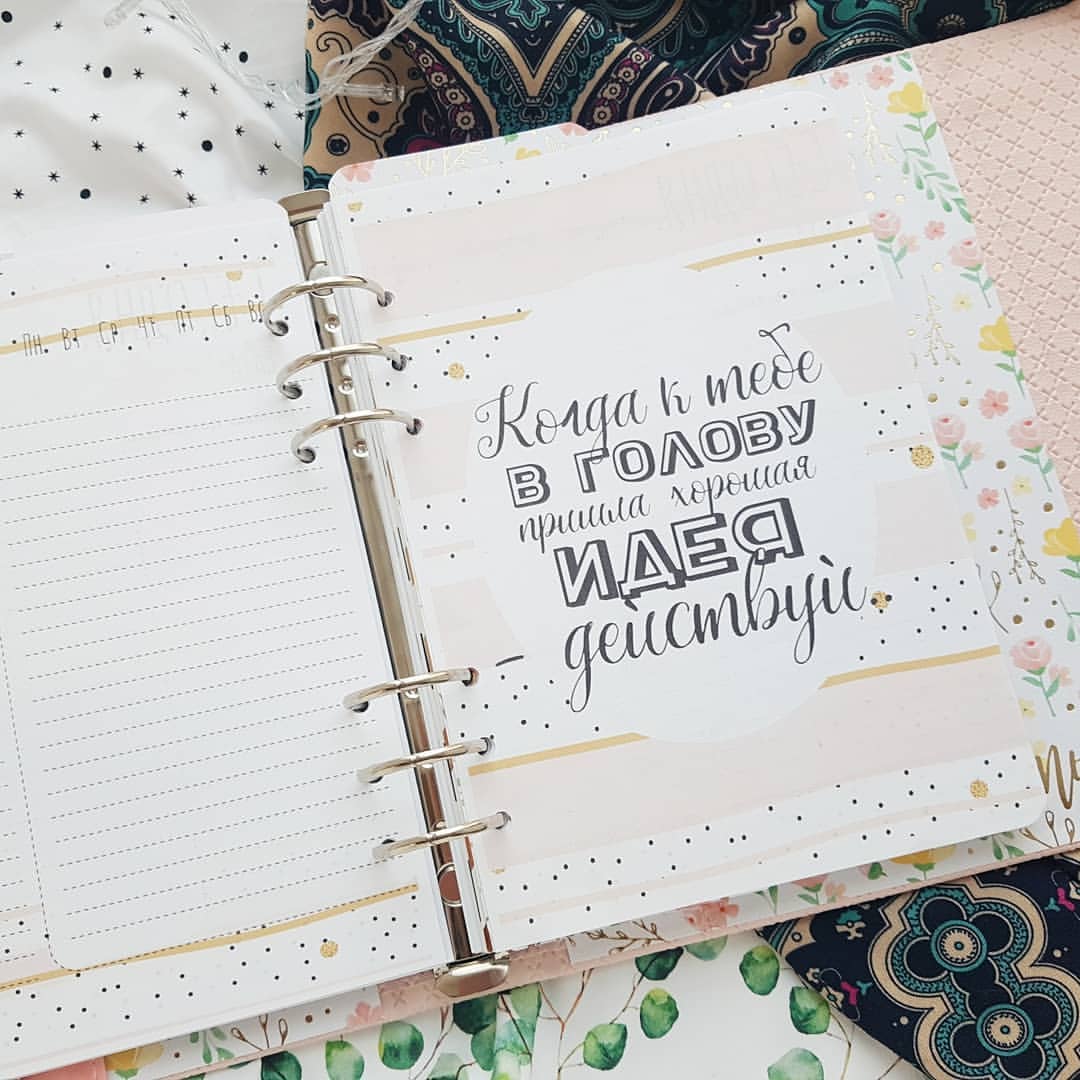 ПН ВТ СР ЧТ ПТ СБ
Когда к тебе
В ГОЛОВУ
пришла хорошая
ИДЕЯ
- действуй.